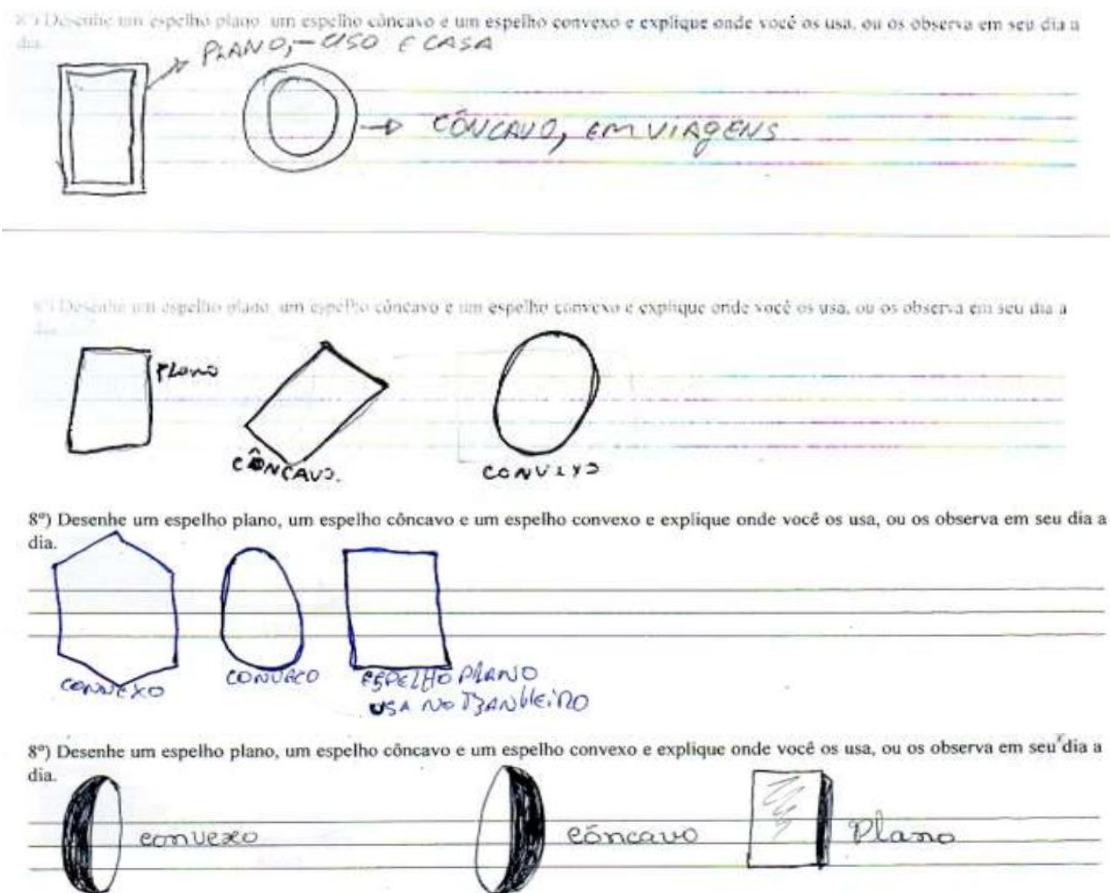 8º) Desenhe um espelho plano, um espelho côncavo e um espelho convexo e explique onde você os usa, ou os observa em seu dia a
dia.
PLANO,- USO E CASA
CÔNCAVO, EM VIAGENS
8º) Desenhe um espelho plano, um espelho côncavo e um espelho convexo e explique onde você os usa, ou os observa em seu dia a
dia.
PLANO
CÔNCAVO.
CONVEXO
8º) Desenhe um espelho plano, um espelho côncavo e um espelho convexo e explique onde você os usa, ou os observa em seu dia a
dia.
CONVEXO
CONVACO
ESPELHO PLANO
USA NO BANHEIRO
8º) Desenhe um espelho plano, um espelho côncavo e um espelho convexo e explique onde você os usa, ou os observa em seu dia a
dia.
convexo
côncavo
Plano